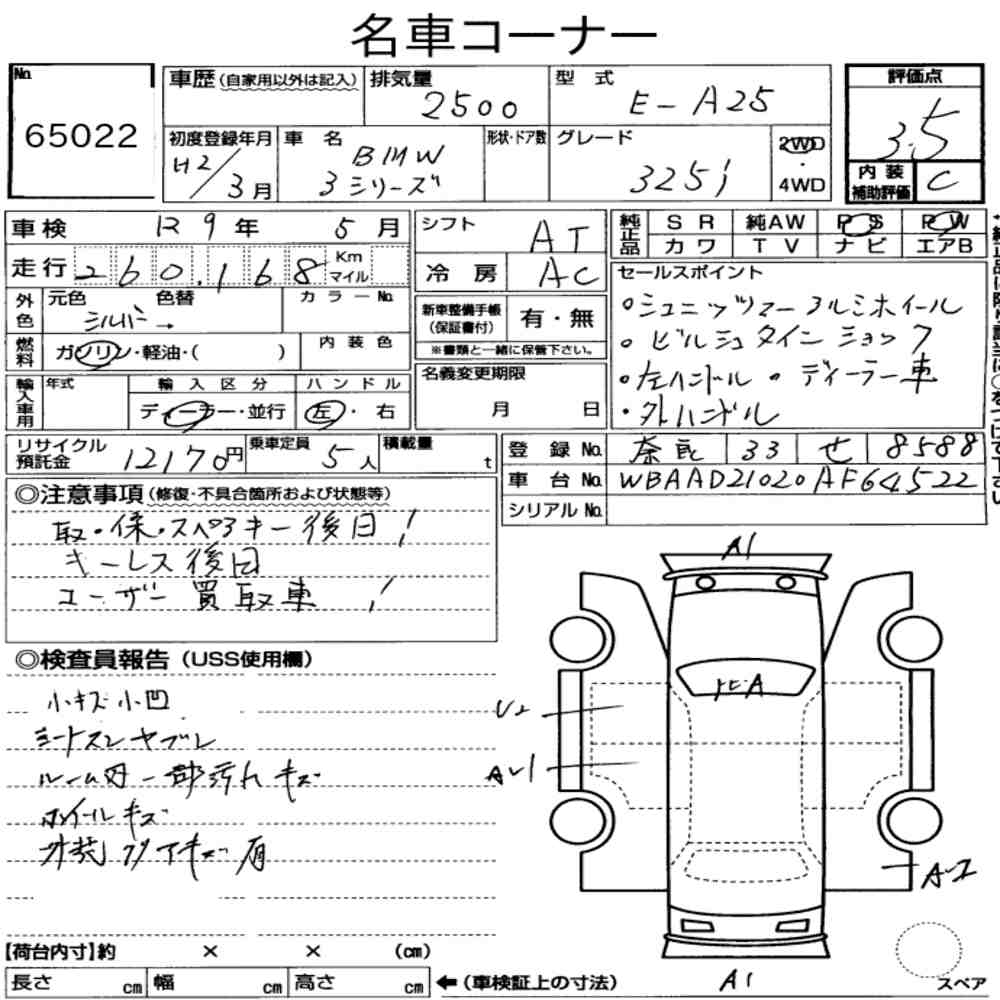 名車コーナー
No. 65022
車歴 (自家用以外は記入)
排気量 2500
型式 E-A25
評価点 3.5
初度登録年月 H2/3月
車名 BMW 3シリーズ
形状・ドア数
グレード 325i
2WD・4WD
内装補助評価 C
車検 R9年 5月
シフト AT
純正品 SR 純AW PS PW
カワ TV ナビ エアB
走行 260,168 Km マイル
冷房 AC
セールスポイント
外色 元色 シルバー → 色替
カラーNo.
新車整備手帳 (保証書付) 有・無
※書類と一緒に保管下さい。
燃料 ガソリン・軽油・( )
内装色
輸入車用 年式
輸入区分 ディーラー・並行
ハンドル 左・右
名義変更期限 月 日
・シュニッツァーアルミホイール
・ビルシュタインショック
・左ハンドル ・ディーラー車
リサイクル預託金 12170円
乗車定員 5人
積載量 t
登録No. 奈良 33 せ 8588
車台No. WBAAD21020AF64522
シリアルNo.
◎注意事項 (修復・不具合箇所および状態等)
取・保・スペアキー後日!
キーレス後日
ユーザー買取車!
◎検査員報告 (USS使用欄)
小キズ小凹
シートスレヤブレ
ルーム内一部汚れキズ
ホイールキズ
A1
飛A
U2
AU1
A1
スペア
【荷台内寸】約 × × (cm)
長さ cm 幅 cm 高さ cm ←(車検証上の寸法)